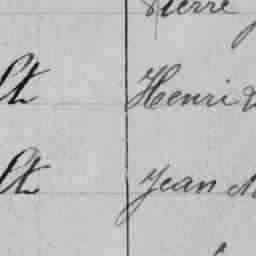 Pierre
lt Henri
lt Jean